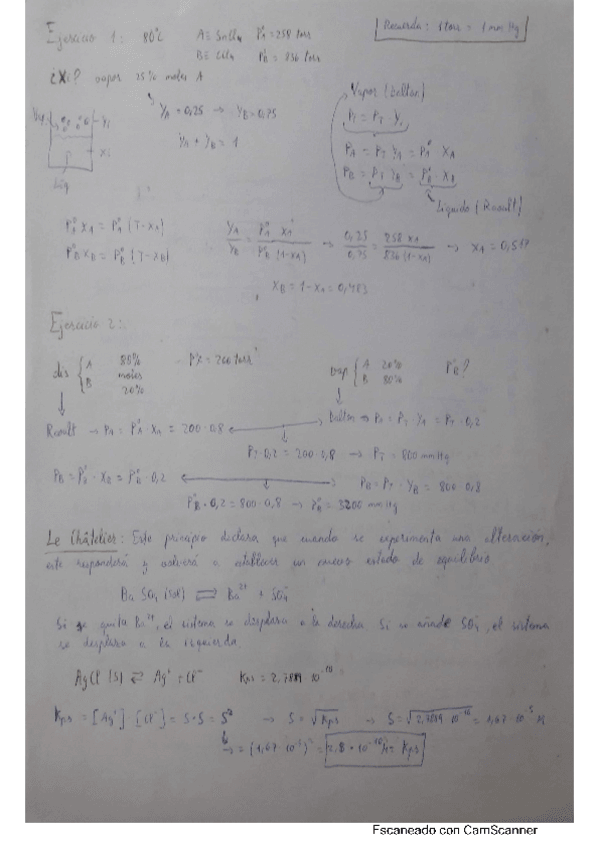 Ejercicio 1: 80°C A≡ SnCl4 P°A = 258 torr
Recuerda: 1 torr = 1 mm Hg
B≡ CCl4 P°B = 836 torr
¿Xi? vapor 25% moles A
YA = 0,25 → YB = 0,75
YA + YB = 1
Vap
Yi
Xi
Líq
Vapor (Dalton)
PT = PT · Yi
PA = PT YA = P°A XA
PB = PT YB = P°B · XB
Líquido (Raoult)
P°A XA = P°A (1-XA)
P°B XB = P°B (1-XB)
YA/YB = P°A XA / P°B (1-XA) → 0,25/0,75 = 258 XA / 836 (1-XA) → XA = 0,517
XB = 1-XA = 0,483
Ejercicio 2:
dis { A 80% moles B 20%
P°A = 200 torr
vap { A 20% B 80%
P°B?
Raoult → PA = P°A · XA = 200 · 0,8
Dalton → PA = PT · YA = PT · 0,2
PT · 0,2 = 200 · 0,8 → PT = 800 mmHg
PB = P°B · XB = P°B · 0,2
PB = PT · YB = 800 · 0,8
P°B · 0,2 = 800 · 0,8 → P°B = 3200 mmHg
Le Châtelier: Este principio declara que cuando se experimenta una alteración,
este responderá y volverá a establecer un nuevo estado de equilibrio
Ba SO4 (sol) ⇌ Ba2+ + SO4=
Si se quita Ba2+, el sistema se desplaza a la derecha. Si se añade SO4=, el sistema
se desplaza a la izquierda.
AgCl (s) ⇌ Ag+ + Cl- Kps = 2,7889 · 10^-10
Kps = [Ag+] · [Cl-] = S · S = S² → S = √Kps → S = √2,7889 · 10^-10 = 1,67 · 10^-5 M
→ = (1,67 · 10^-5)² = 2,8 · 10^-10 = Kps
Escaneado con CamScanner